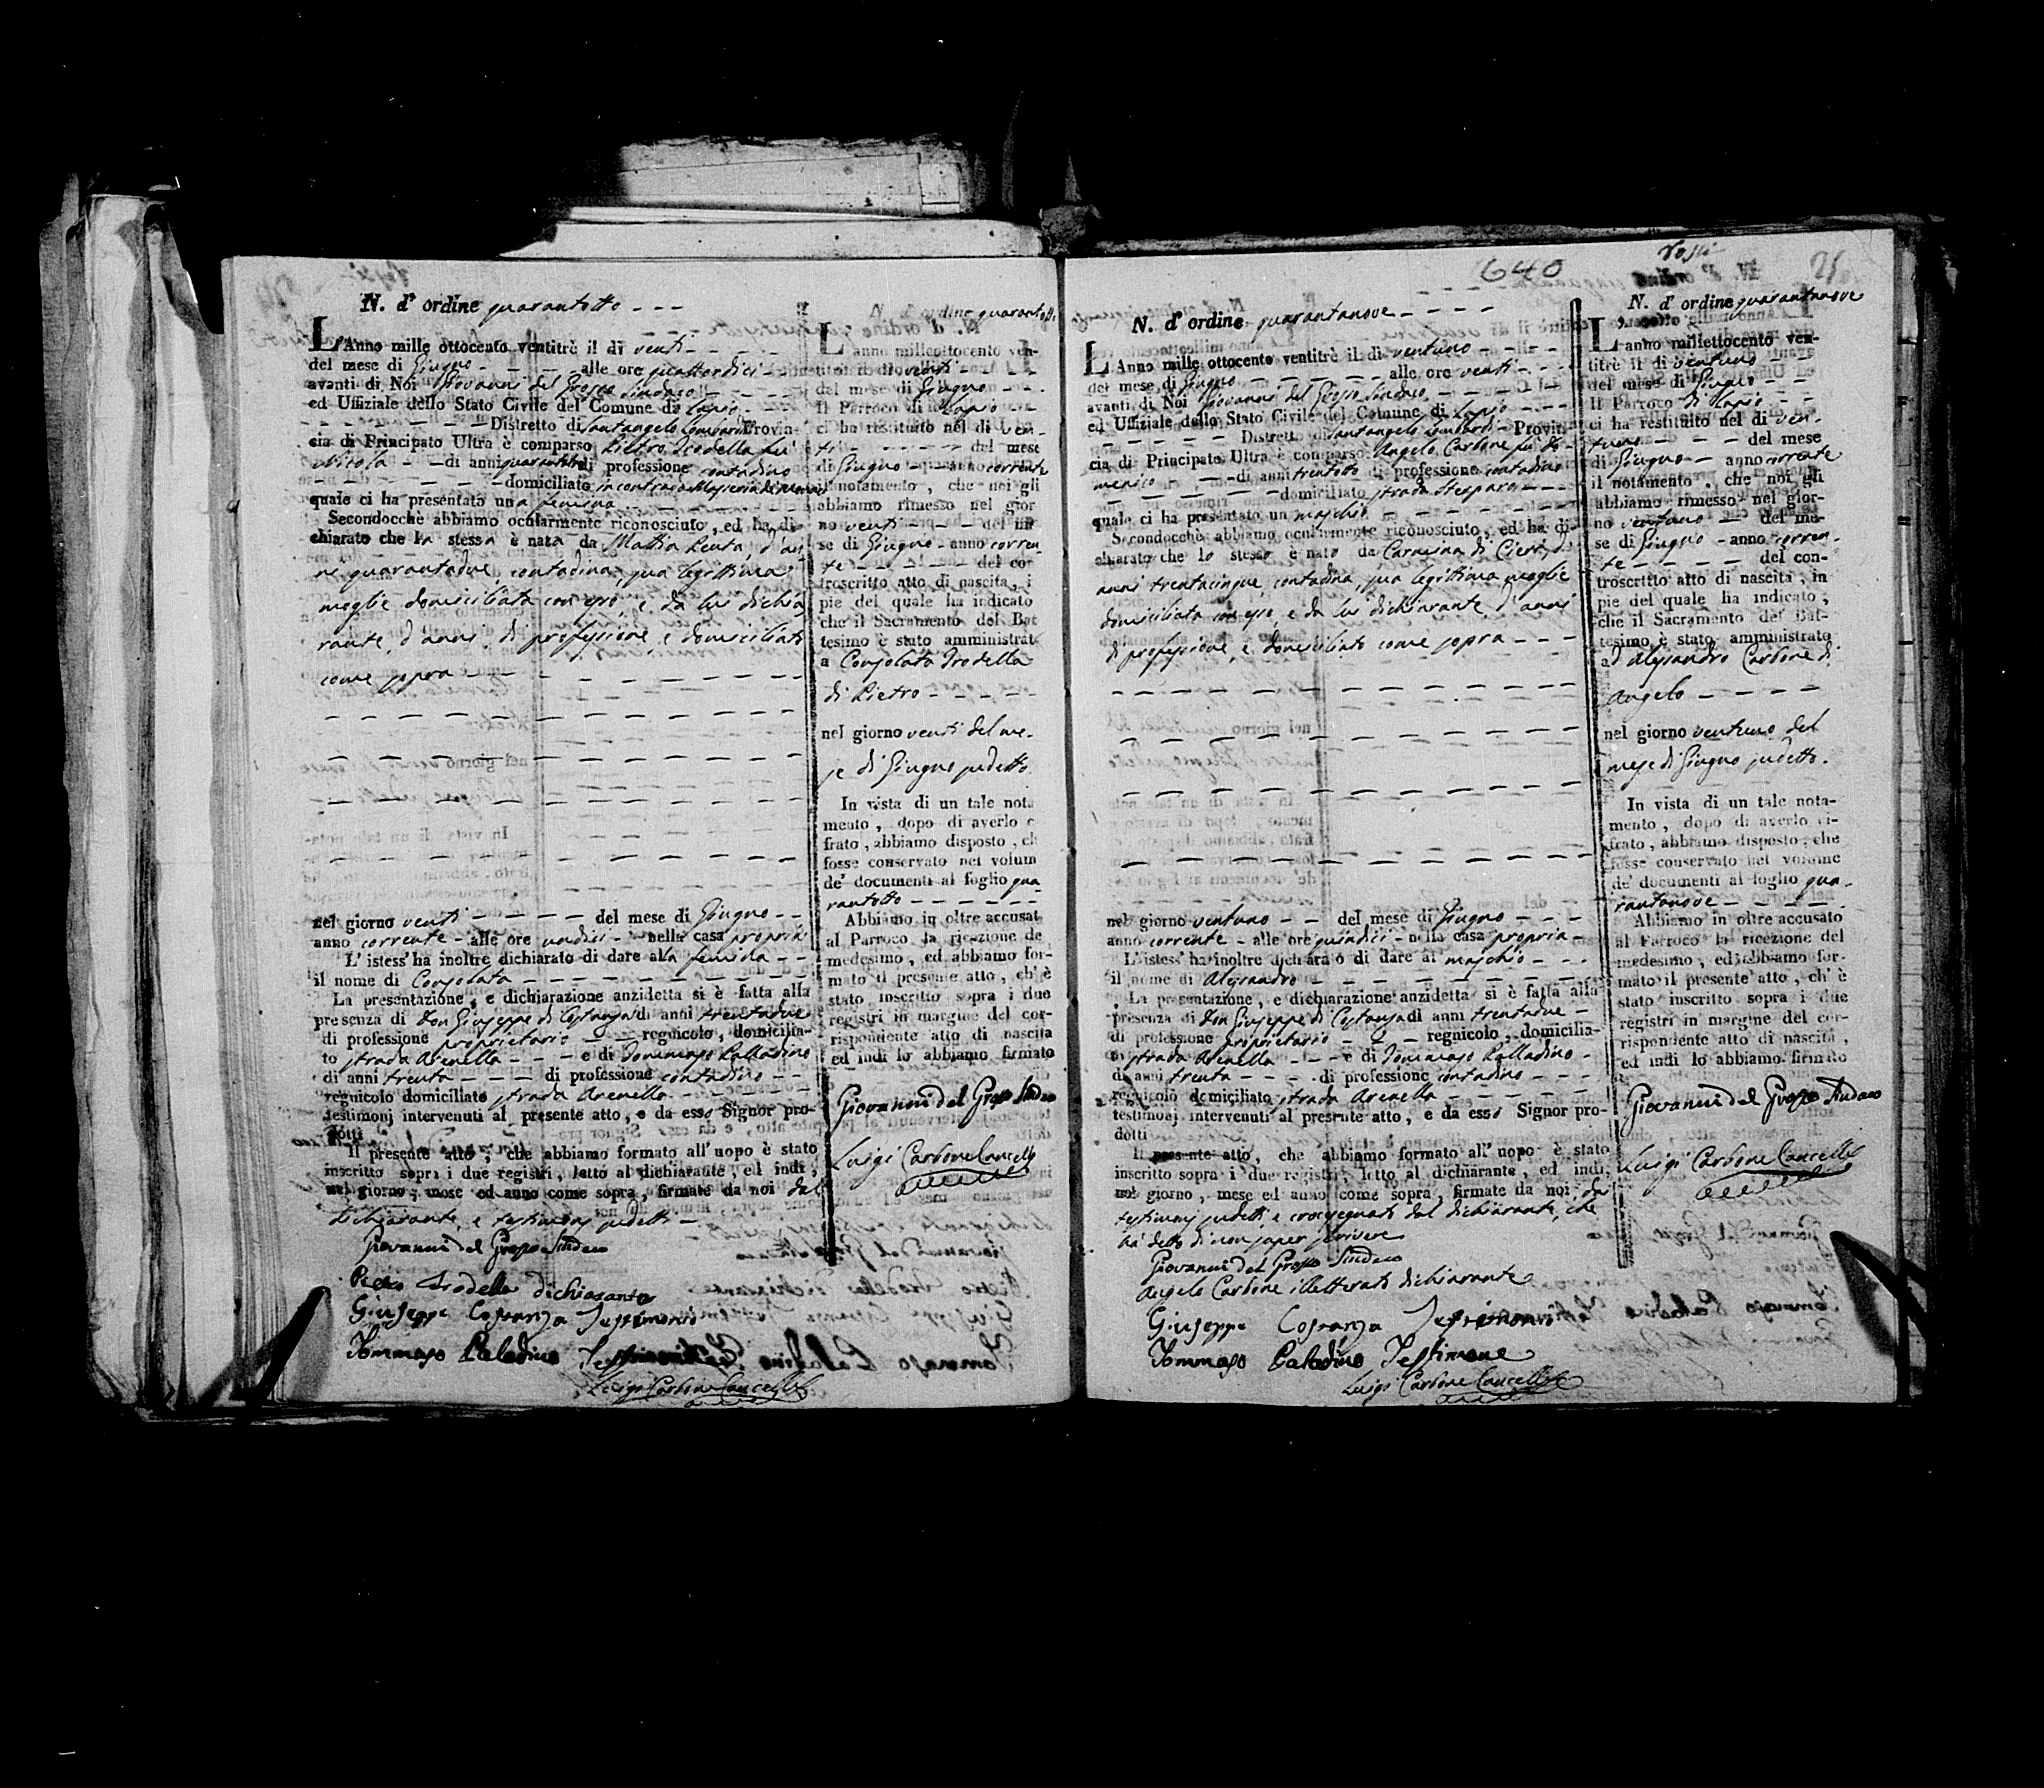 N. d' ordine quarantotto
L'Anno mille ottocento ventitrè il di venti
del mese di Giugno alle ore quattordici
avanti di Noi Giovanni del Grosso Sindaco
ed Uffiziale dello Stato Civile del Comune di Lapio
Distretto di Santangelo Lombardi Provin-
cia di Principato Ultra è comparso Pietro Trodella fu
Nicola di anni quarantotto di professione contadino
domiciliato in contrada Masseria
quale ci ha presentato una femina
Secondocchè abbiamo ocularmente riconosciuto, ed ha di-
chiarato che la stessa è nata da Mattia Penta, d'an
ni quarantadue, contadina, sua legittima
moglie domiciliata con esso, e da lui dichia
rante, d'anni, di professione, e domiciliati
come sopra
nel giorno venti del mese di Giugno
anno corrente alle ore undici nella casa propria
L' istess' ha inoltre dichiarato di dare alla femina
il nome di Consolata
La presentazione, e dichiarazione anzidetta si è fatta alla
presenza di Don Giuseppe di Costanza di anni trentadue
di professione proprietario regnicolo, domicilia-
to strada Arenella e di Tommaso Palladino
di anni trenta di professione contadino
regnicolo domiciliato strada Arenella
testimonj intervenuti al presente atto, e da esso Signor pro-
dotti
Il presente atto, che abbiamo formato all' uopo è stato
inscritto sopra i due registri, letto al dichiarante, ed indi,
nel giorno, mese ed anno come sopra, firmate da noi dal
dichiarante, e testimonj sudetti
Giovanni del Grosso Sindaco
Pietro Trodella dichiarante
Giuseppe Costanza Testimonio
Tommaso Paladino Testimone
Luigi Carbone Cancelliere
N. d' ordine quarantotto
L' anno milleottocento ven-
titrè il di venti
del mese di Giugno
Il Parroco di Lapio
ci ha restituito nel di ven-
ti del mese
di Giugno anno corrente
il notamento, che noi gli
abbiamo rimesso nel gior-
no venti del me-
se di Giugno anno corren-
te del con-
troscritto atto di nascita, i
pie del quale ha indicato
che il Sacramento del Bat
tesimo è stato amministrat
a Consolata Trodella
di Pietro
nel giorno venti del me-
se di Giugno sudetto
In vista di un tale nota
mento, dopo di averlo c
frato, abbiamo disposto, ch
fosse conservato nel volum
de' documenti al foglio qua-
rantotto
Abbiamo in oltre accusat
al Parroco la ricezione de
medesimo, ed abbiamo for-
mato il presente atto, ch' è
stato inscritto sopra i due
registri in margine del cor-
rispondente atto di nascita
ed indi lo abbiamo firmato
Giovanni del Grosso Sindaco
Luigi Carbone Cancelli
640
N. d' ordine quarantanove
L'Anno mille ottocento ventitrè il di ventuno
del mese di Giugno alle ore venti
avanti di Noi Giovanni del Grosso Sindaco
ed Uffiziale dello Stato Civile del Comune di Lapio
Distretto di Santangelo Lombardi Provin-
cia di Principato Ultra è comparso Angelo Carbone fu Do-
menico di anni trentotto di professione contadino
domiciliato strada
quale ci ha presentato un maschio
Secondocchè abbiamo ocularmente riconosciuto, ed ha di-
chiarato che lo stesso è nato da Carmina di Cierj, di
anni trentacinque, contadina, sua legittima moglie
domiciliata con esso, e da lui dichiarante, d'anni
di professione, e domiciliato come sopra
nel giorno ventuno del mese di Giugno
anno corrente alle ore quindici nella casa propria
L' istess' ha inoltre dichiarato di dare al maschio
il nome di Alesandro
La presentazione, e dichiarazione anzidetta si è fatta alla
presenza di Don Giuseppe di Costanza di anni trentadue
di professione proprietario regnicolo, domicilia-
to strada Arenella e di Tommaso Palladino
di anni trenta di professione contadino
regnicolo domiciliato strada Arenella
testimonj intervenuti al presente atto, e da esso Signor pro-
dotti
Il presente atto, che abbiamo formato all' uopo è stato
inscritto sopra i due registri, letto al dichiarante, ed indi,
nel giorno, mese ed anno come sopra, firmate da noi, da
testimonj sudetti, e crocesegnato dal dichiarante, che
ha detto di non saper scrivere
Giovanni del Grosso Sindaco
Angelo Carbone illetterato dichiarante
Giuseppe Costanza Testimonio
Tommaso Paladino Testimone
Luigi Carbone Cancelliere
N. d' ordine quarantanove
L' anno milleottocento ven-
titrè il di ventuno
del mese di Giugno
Il Parroco di Lapio
ci ha restituito nel di ven-
tuno del mese
di Giugno anno corrente
il notamento, che noi gli
abbiamo rimesso nel gior-
no ventuno del me-
se di Giugno anno corren-
te del con-
troscritto atto di nascita, in
pie del quale ha indicato,
che il Sacramento del Bat-
tesimo è stato amministrato
ad Alesandro Carbone di
Angelo
nel giorno ventuno del
mese di Giugno sudetto.
In vista di un tale nota-
mento, dopo di averlo ci-
frato, abbiamo disposto, che
fosse conservato nel volume
de' documenti al foglio qua-
rantanove
Abbiamo in oltre accusato
al Parroco la ricezione del
medesimo, ed abbiamo for-
mato il presente atto, ch' è
stato inscritto sopra i due
registri in margine del cor-
rispondente atto di nascita,
ed indi lo abbiamo firmato
Giovanni del Grosso Sindaco
Luigi Carbone Cancelli